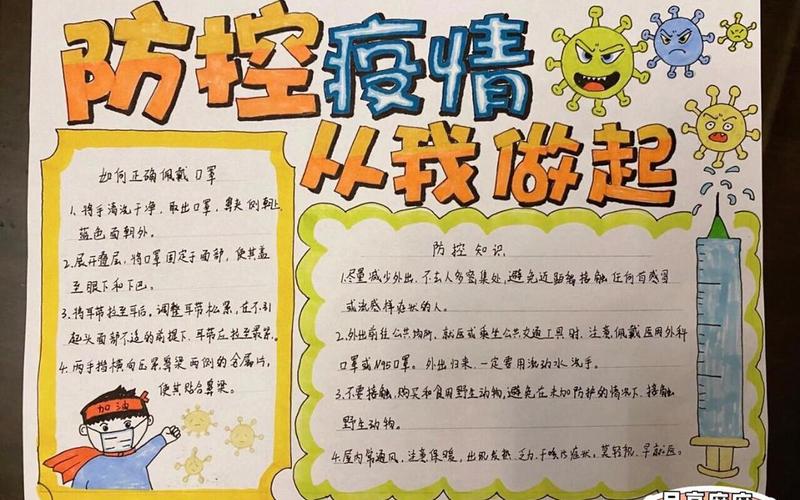 防控疫情
从我做起
如何正确佩戴口罩
1、将手清洗干净，取出口罩，鼻夹侧朝上，
蓝色面朝外。
2、展开叠层，将口罩固定于面部，使其盖
至眼下和下巴。
3、将耳带拉至耳后，调整耳带松紧，在不引
起头面部不适的前提下，耳带应拉至最紧。
4、两手指横向压紧鼻梁两侧的金属片，
使其贴合鼻梁。
加油
防控知识
1.尽量减少外出，不去人多密集处，避免近距离接触任何有感冒
或流感样症状的人。
2.外出前往公共场所、就医或乘坐公共交通工具时，注意佩戴医用外科
口罩或N95口罩。外出归来，一定要用流动水洗手。
3.不要接触、购买和食用野生动物，避免在未加防护的情况下，接触
野生动物。
4.屋内常通风，注意保暖，出现发热、乏力、干咳等症状，莫轻视，早就医。